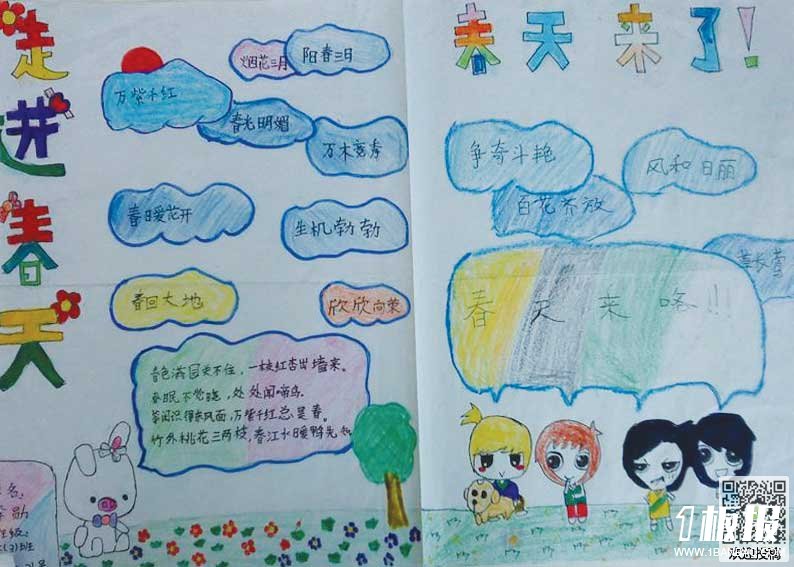 走进春天
春天来了!
烟花三月
阳春三日
万紫千红
春光明媚
万木
春日暖花开
生机勃勃
春回大地
欣欣向荣
春色满园关不住，一枝红杏出墙来。
春眠不觉晓，处处闻啼鸟。
等闲识得春风面，万紫千红总是春。
竹外桃花三两枝，春江水暖鸭先知
争奇斗艳
风和日丽
百花齐放
莺
春天来咯!!!
名
班级:
(2)班
1板报
WWW.1BANBAO.COM
欢迎投稿